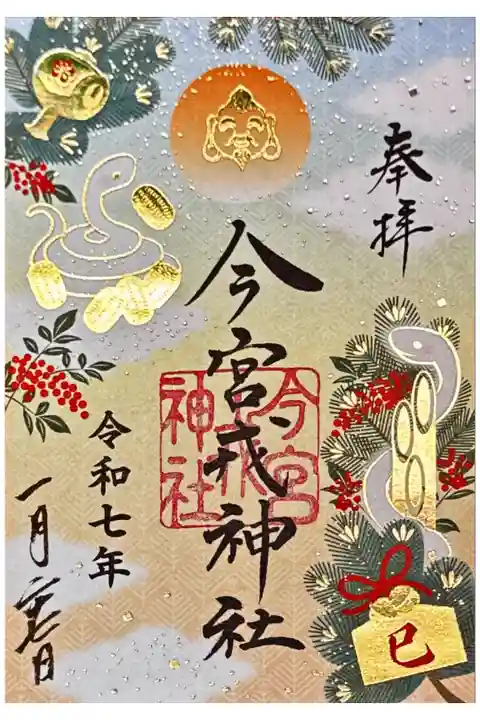 奉拝
今宮戎神社
今宮
戎
神社
令和七年
一月七日
巳